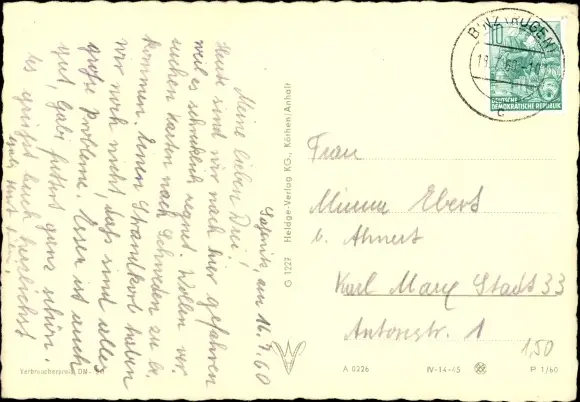 Saßnitz, am 16.7.60
Meine lieben Drei!
Heut sind wir nach hier gefahren
weil es schrecklich regnet. Wollen ver
suchen Karten nach Schweden zu be
kommen. Einen Strandkorb haben
wir noch nicht, das sind alles
große Probleme. Essen ist auch
gut, Gabi futtert ganz schön.
Es grüßt Euch herzlichst
G 1227 Heldge-Verlag KG., Köthen/Anhalt
BINZ (RÜGEN)
c
10
DEUTSCHE
DEMOKRATISCHE REPUBLIK
Frau
Minna Ebert
b. Ahnert
Karl Marx Stadt 33
Antonstr. 1
1,50
Verbraucherpreis DM
A 0226
IV-14-45
P 1/60